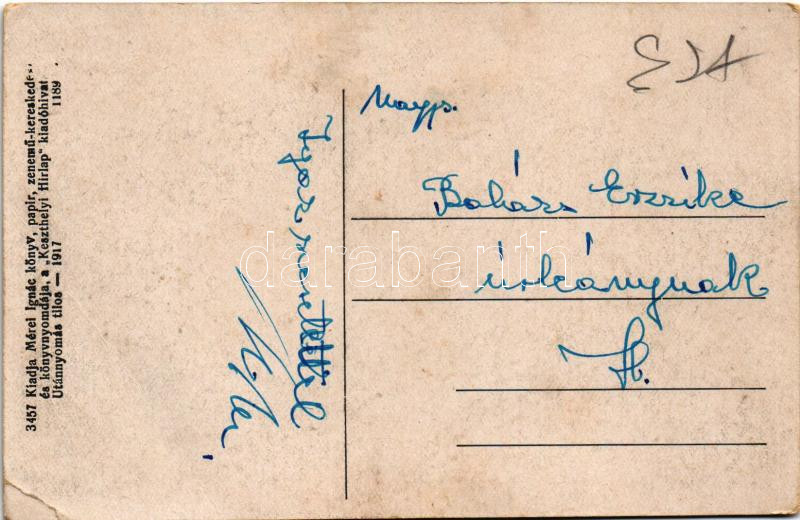 3457 Kiadja Mérei Ignác könyv, papir, zenemű-kereskedé
és könyvnyomdája, a „Keszthelyi Hirlap” kiadóhivat
Utánnyomás tilos — 1917 1189
Igaz szeretettel
Nagys.
Erzsike
úrleánynak
H.
darabanth